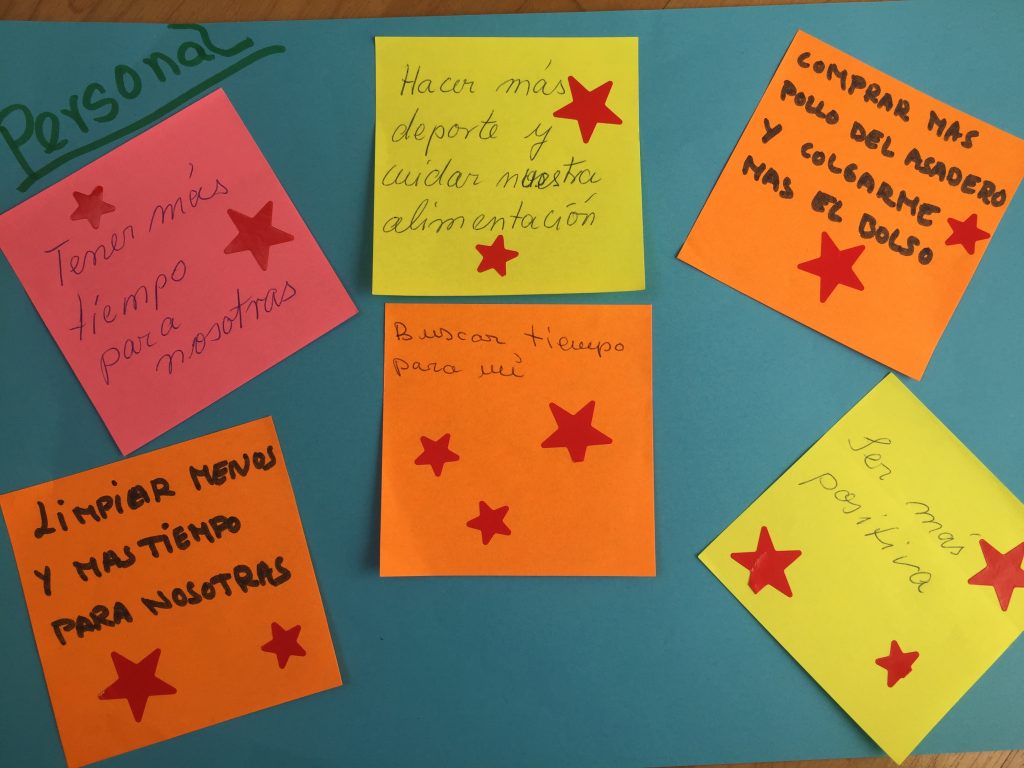 Personal
Tener más
tiempo
para
nosotras
Hacer más
deporte y
cuidar nuestra
alimentación
COMPRAR MAS
POLLO DEL ASADERO
Y COLGARME
MAS EL BOLSO
LIMPIAR MENOS
Y MAS TIEMPO
PARA NOSOTRAS
Buscar tiempo
para mí
Ser más
positiva